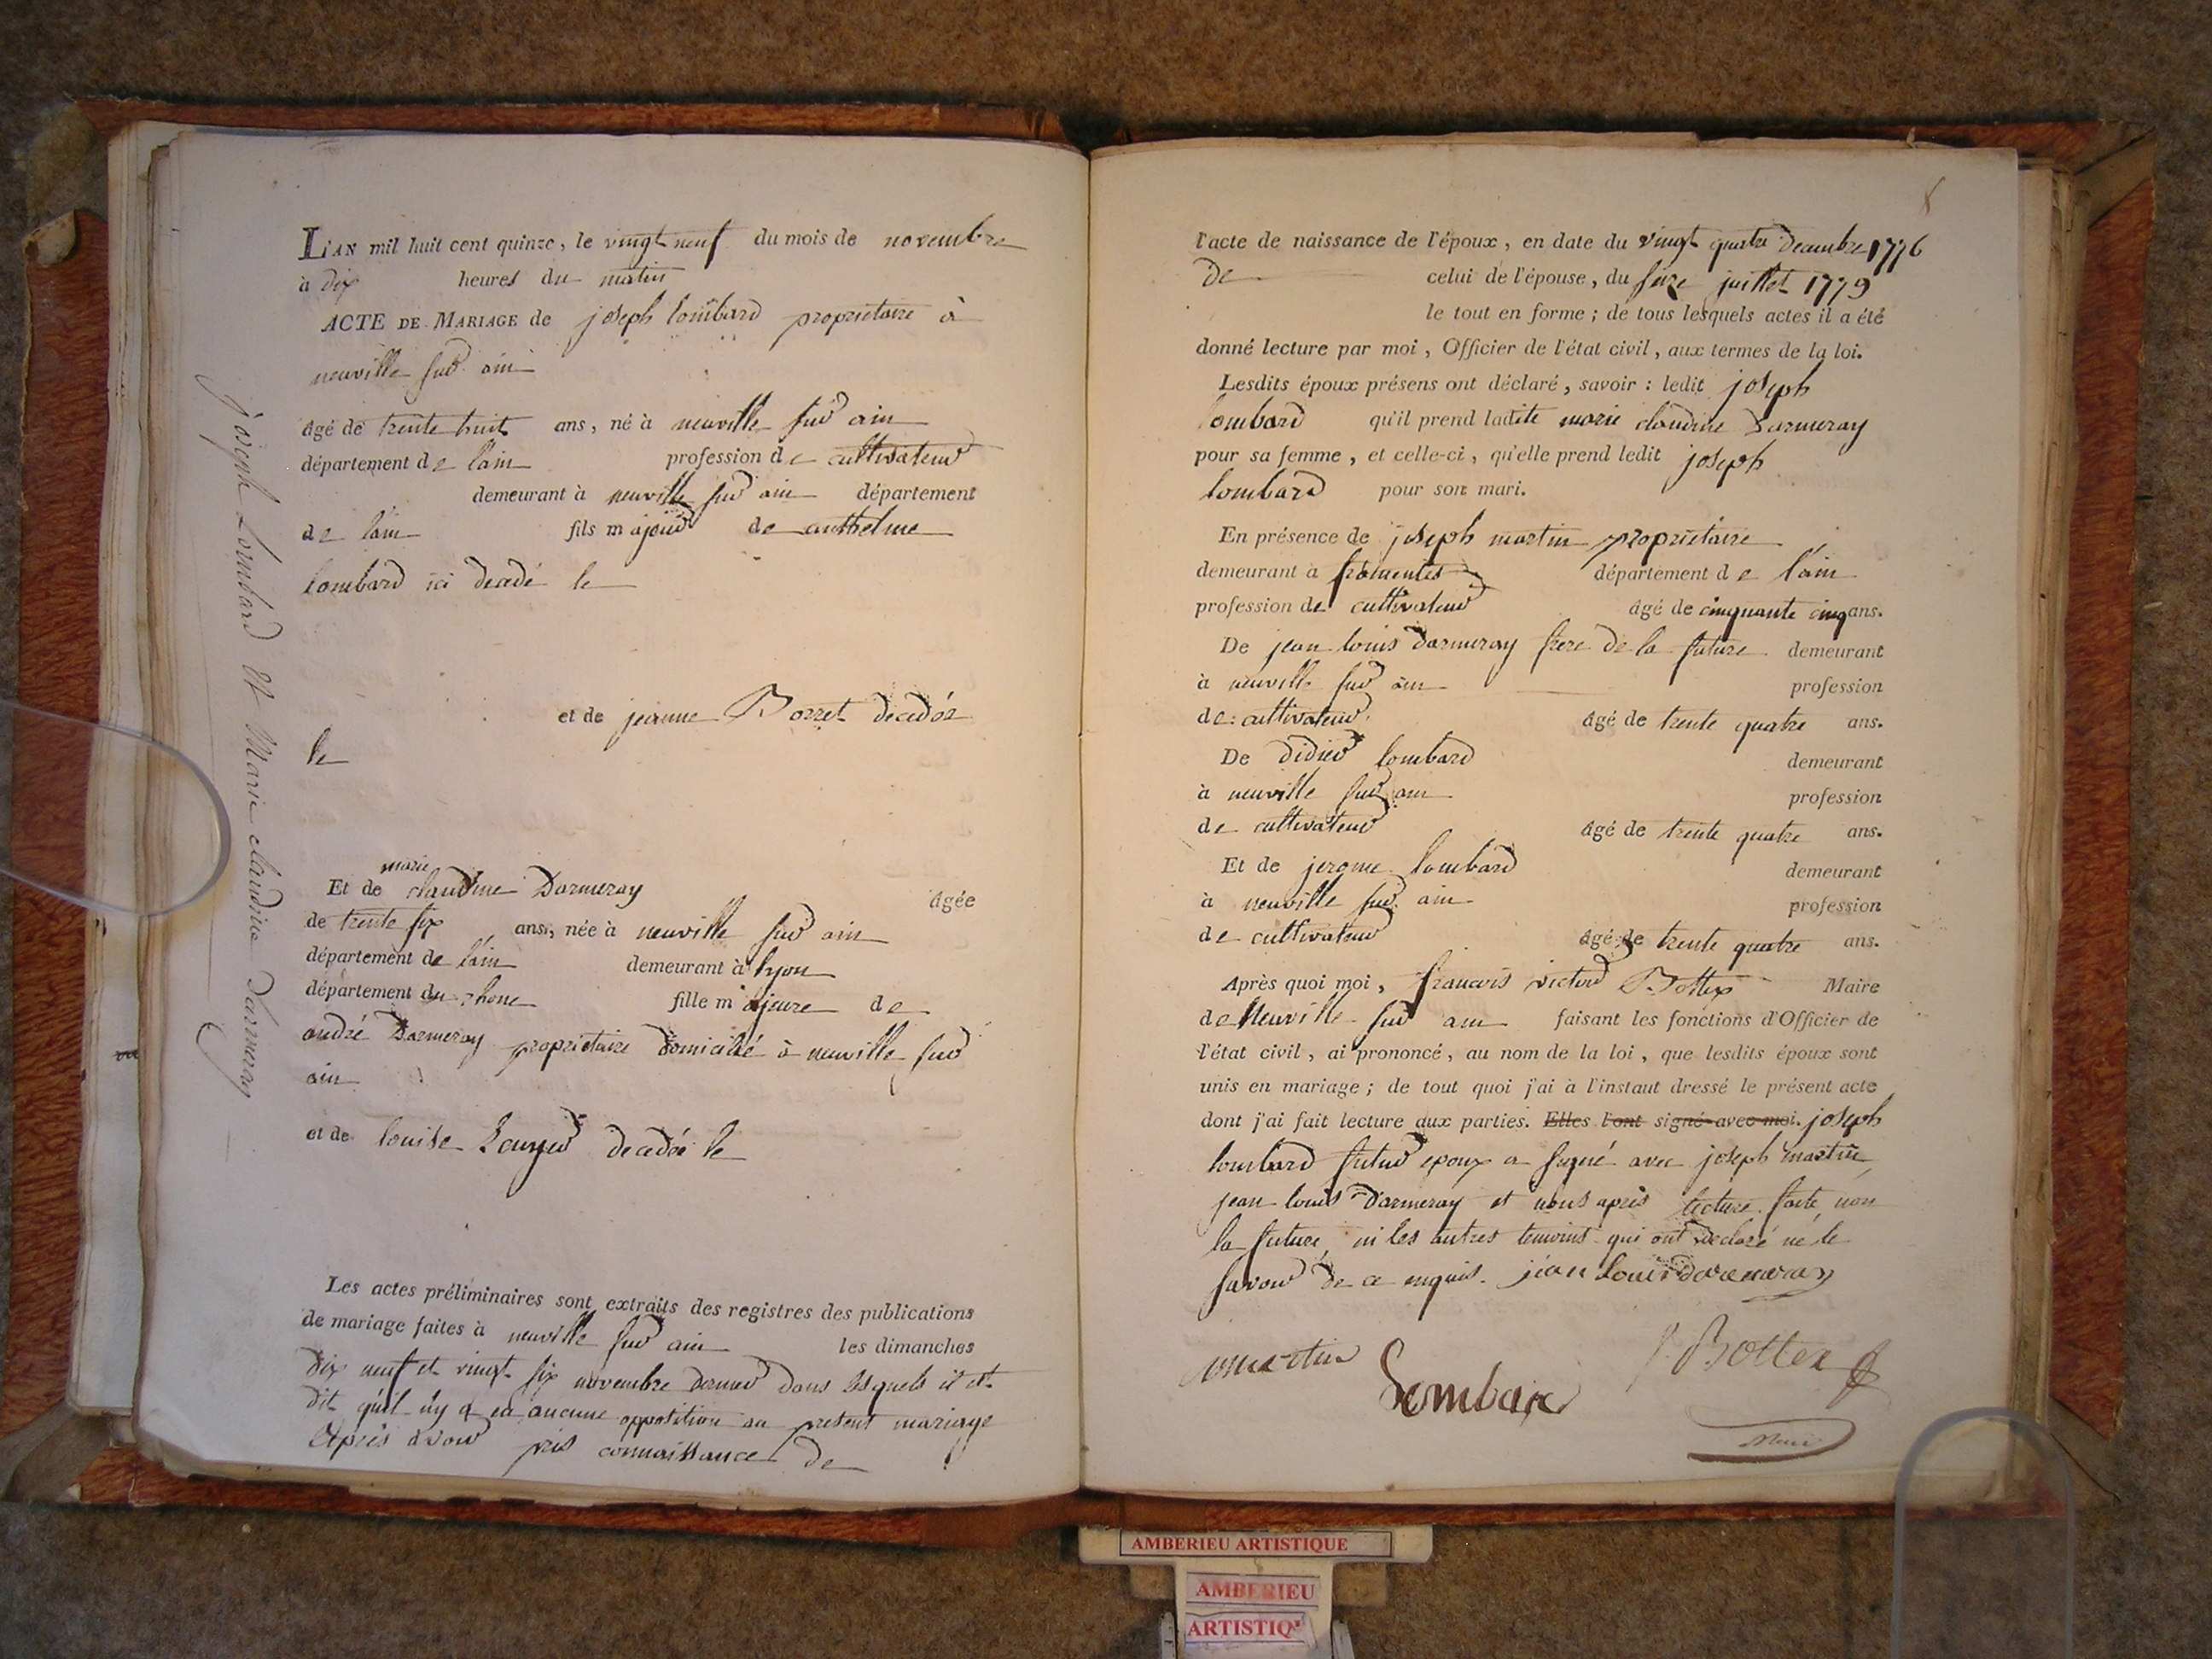 L'AN mil huit cent quinze, le vingt neuf du mois de novembre
à dix heures du matin
ACTE DE MARIAGE de joseph lombard proprietaire à
neuville sur ain
âgé de trente huit ans, né à neuville sur ain
département de lain profession de cultivateur
demeurant à neuville sur ain département
de lain fils majeur de anthelme
lombard ici decedé le
et de jeanne Borret decedée
le
marie
Et de claudine Darmeray âgée
de trente six ans, née à neuville sur ain
département de l'ain demeurant à lyon
département du rhone fille majeure de
andré Darmeray proprietaire domicilié à neuville sur
ain
et de louise decedée le
Les actes préliminaires sont extraits des registres des publications
de mariage faites à neuville sur ain les dimanches
dix neuf et vingt six novembre dernier dans lesquels il est
dit qu'il n'y a eu aucune opposition au present mariage
Après avoir pris connaissance de
joseph Lombard et Marie claudine Darmeray
8
l'acte de naissance de l'époux, en date du vingt quatre decembre 1776
de celui de l'épouse, du seize juillet 1779
le tout en forme ; de tous lesquels actes il a été
donné lecture par moi, Officier de l'état civil, aux termes de la loi.
Lesdits époux présens ont déclaré, savoir : ledit joseph
lombard qu'il prend ladite marie claudine Darmeray
pour sa femme, et celle-ci, qu'elle prend ledit joseph
lombard pour son mari.
En présence de joseph martin proprietaire
demeurant à fromentes département de l'ain
profession de cultivateur âgé de cinquante cinq ans.
De jean louis Darmeray frere de la future demeurant
à neuville sur ain profession
de cultivateur âgé de trente quatre ans.
De didier lombard demeurant
à neuville sur ain profession
de cultivateur âgé de trente quatre ans.
Et de jerome lombard demeurant
à neuville sur ain profession
de cultivateur âgé de trente quatre ans.
Après quoi moi, francois victor Bottex Maire
de Neuville sur ain faisant les fonctions d'Officier de
l'état civil, ai prononcé, au nom de la loi, que lesdits époux sont
unis en mariage ; de tout quoi j'ai à l'instant dressé le présent acte
dont j'ai fait lecture aux parties. Elles l'ont signé avec moi. joseph
lombard futur epoux a signé avec joseph martin
jean louis Darmeray et nous apres lecture faite, non
la future, ni les autres temoins qui ont declaré ne le
savoir de ce enquis. jean Louis darmeray
martin
Lombard
Bottex
Maire
AMBERIEU ARTISTIQUE
AMBERIEU
ARTISTIQ